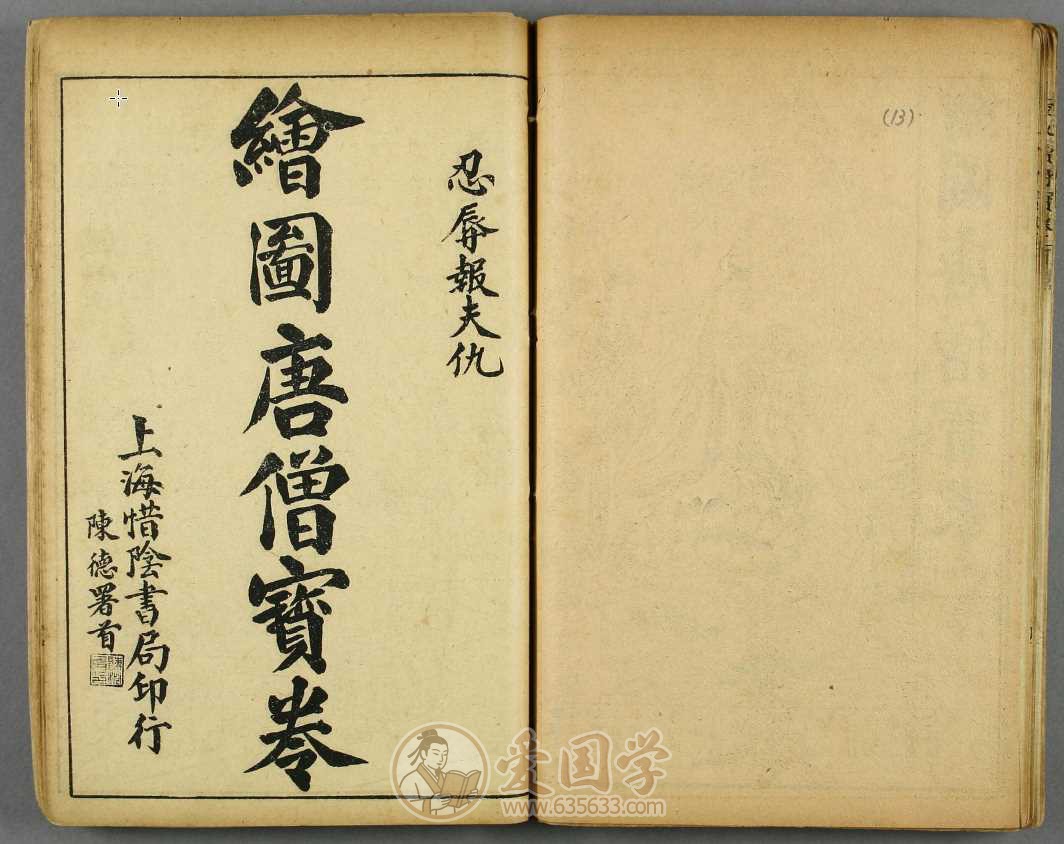 忍辱報夫仇
繪圖唐僧寳卷
上海惜陰書局印行
陳德署首
(13)
爱国学
www.635633.com